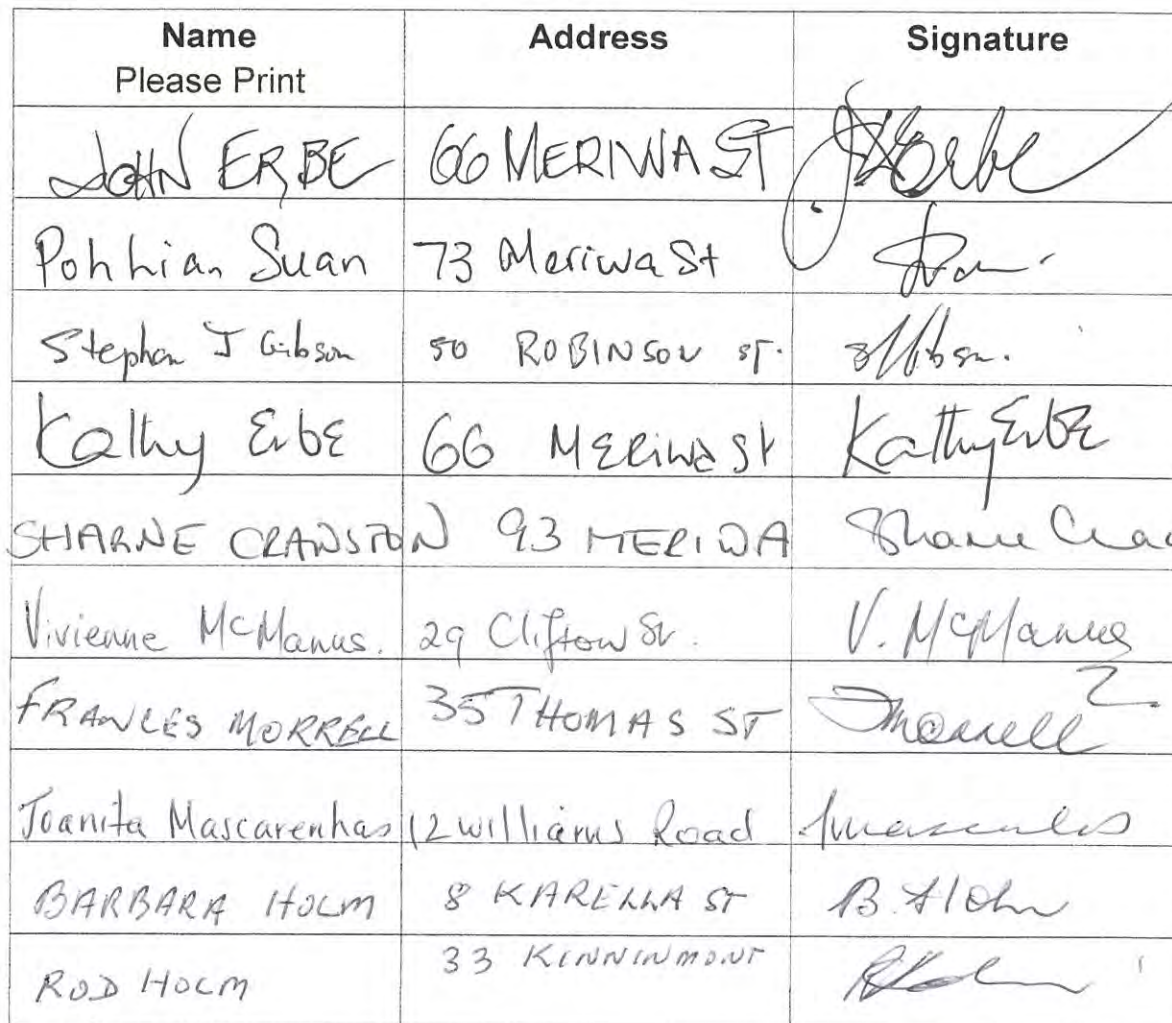 Name Address Signature
Please Print
JOHN ERBE 66 MERIWA ST JErbe
Pohhian Suan 73 Meriwa St
Stephen J Gibson 50 ROBINSON ST.
Kathy ErbE 66 MERiwa St Kathy ErbE
SHARNE CRANSTON 93 MERIWA Sharne
Vivienne McManus. 29 Clifton St. V. McManus
FRANCES MORRELL 35 THOMAS ST Morrell
Joanita Mascarenhas 12 Williams Road
BARBARA HOLM 8 KARELLA ST B. Holm
ROD HOLM 33 KINNINMONT